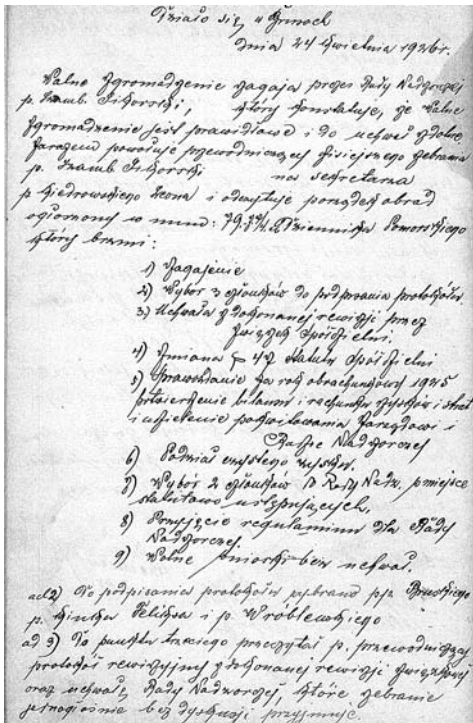 Działo się w Brusach
dnia 24 kwietnia 1926 r.
Walne Zgromadzenie zagaja prezes Rady Nadzorczej
p. Szamb. Sikorski, który konstatuje, że Walne
Zgromadzenie jest prawidłowe i do uchwał zdolne.
Zarazem powołuje przewodniczący dzisiejszego zebrania
p. Szamb. Sikorski na sekretarza
p. Giedrowskiego Leona i odczytuje porządek obrad
ogłoszony w num: 79. Dziennika Pomorskiego
który brzmi:
1) Zagajenie
2) Wybór 3 członków do podpisania protokółu
3) Uchwała z dokonanej rewizji przez
Związek Spółdzielni.
4) Zmiana § 47 statutu Spółdzielni
5) Sprawozdanie za rok obrachunkowy 1925
zatwierdzenie bilansu i rachunku zysków i strat
i udzielenie pokwitowania Zarządowi i
Radzie Nadzorczej
6) Podział czystego zysku.
7) Wybór 2 członków do Rady Nadz. w miejsce
statutowo ustępujących.
8) Przyjęcie regulaminu dla Rady
Nadzorczej.
9) Wolne wnioski bez uchwał.
ad 2) Do podpisania protokółu wybrano pp.
p. Feliksa i p. Wróblewskiego
ad 3) Do punktu trzeciego przeczytał p. przewodniczący
protokół rewizyjny z dokonanej rewizji związkowej
oraz uchwałę Rady Nadzorczej, które zebranie
jednogłośnie bez dyskusji przyjmuje.